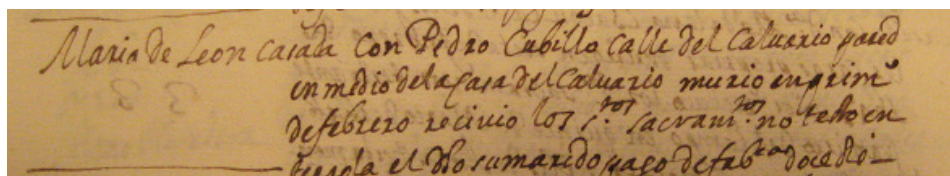 Maria de Leon casada con Pedro Cubillo calle del Calvario pared
en medio de la casa del Calvario murio en prim.o
de febrero recivio los s.tos sacram.tos no testo en
el dho su marido pago de fab.ca doce Rs